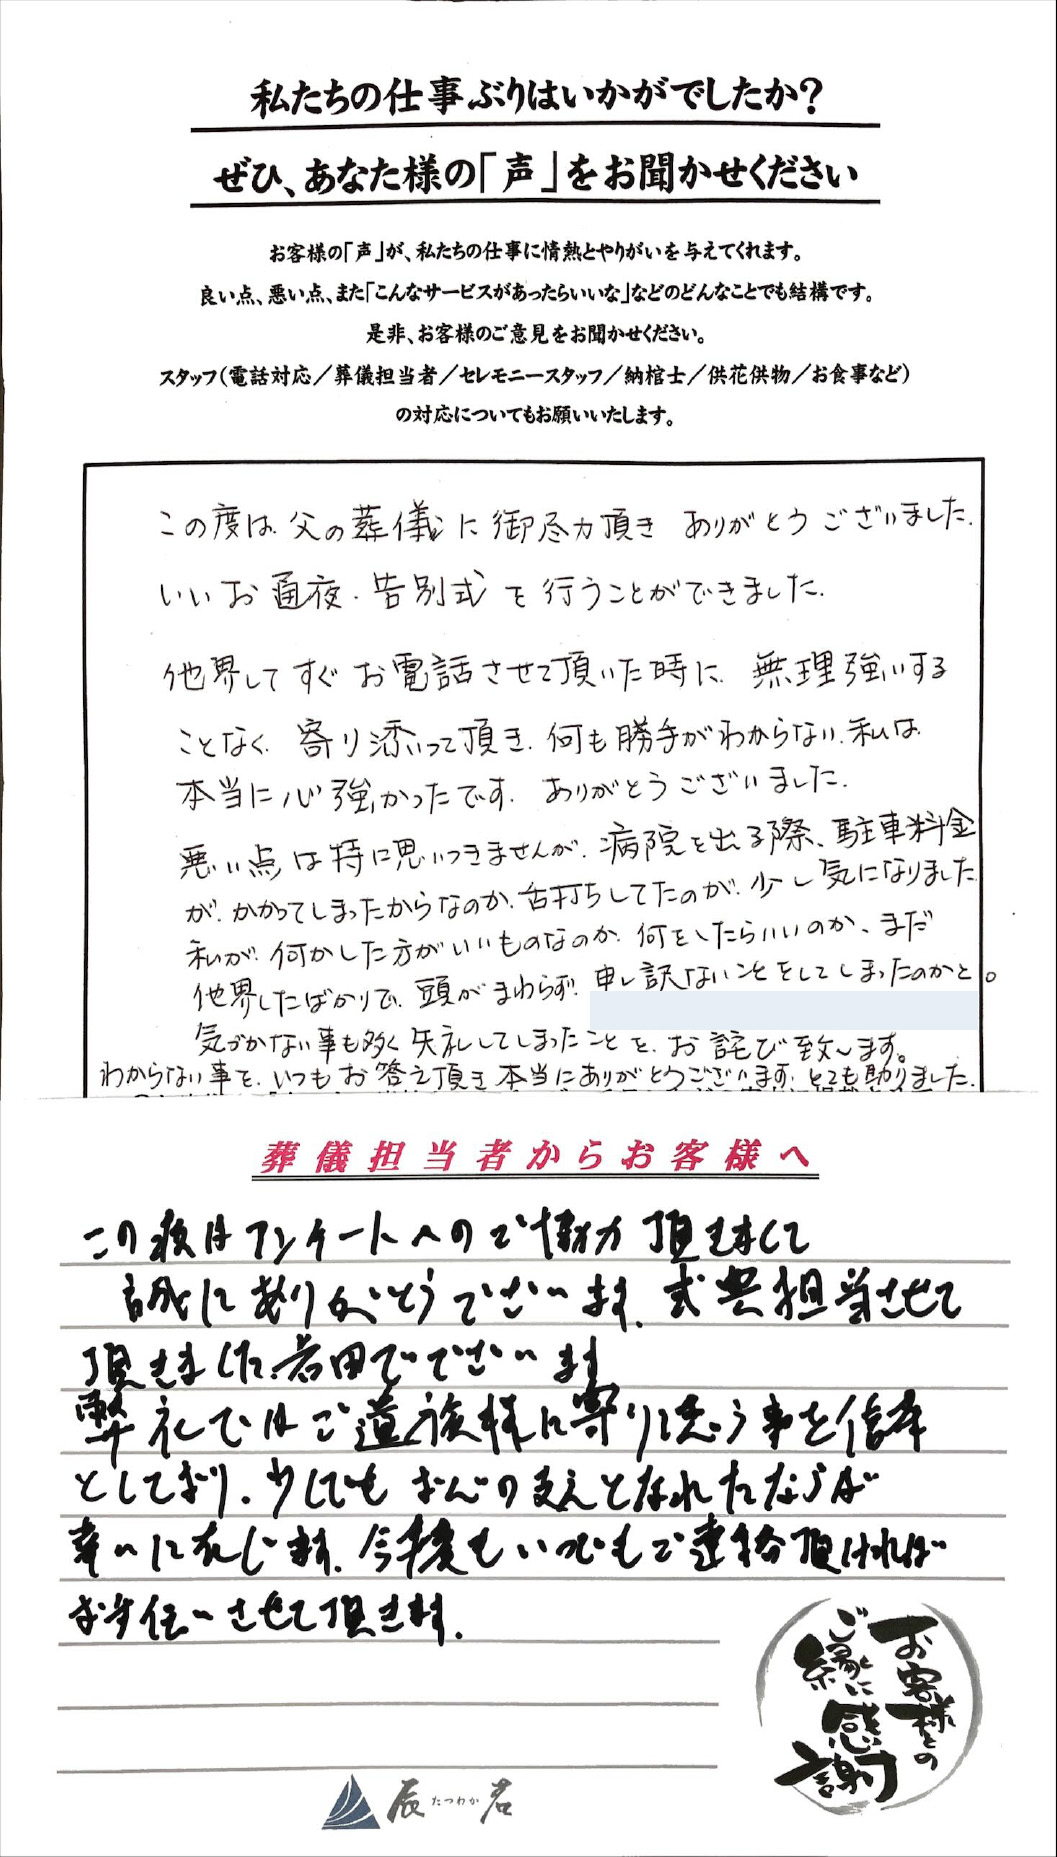 私たちの仕事ぶりはいかがでしたか?
ぜひ、あなた様の「声」をお聞かせください
お客様の「声」が、私たちの仕事に情熱とやりがいを与えてくれます。
良い点、悪い点、また「こんなサービスがあったらいいな」などのどんなことでも結構です。
是非、お客様のご意見をお聞かせください。
スタッフ(電話対応/葬儀担当者/セレモニースタッフ/納棺士/供花供物/お食事など)
の対応についてもお願いいたします。
この度は、父の葬儀に御尽力頂き ありがとうございました。
いいお通夜・告別式を行うことができました。
他界してすぐお電話させて頂いた時に、無理強いする
ことなく、寄り添いって頂き、何も勝手がわからない、私は
本当に心強かったです。ありがとうございました。
悪い点は特に思いつきませんが、病院を出る際、駐車料金
が、かかってしまったからなのか、舌打ちしてたのが、少し気になりました
私が、何かした方がいいものなのか、何をしたらいいのか、まだ
他界したばかりで、頭がまわらず、申し訳ないことをしてしまったのかと。
気づかない事も多く失礼してしまったことを、お詫び致します。
わからない事を、いつもお答え頂き本当にありがとうございます、とても助りました。
葬儀担当者からお客様へ
この度はアンケートへのご協力頂きまして
誠にありがとうございます。式典担当させて
頂きました岩田でございます
弊社ではご遺族様に寄り添う事を信条
としており、少しでも お心の支えとなれたならば
幸いに存じます。今後もいつでもご連絡頂ければ
お手伝いさせて頂きます。
お客様との
ご縁に
感謝
辰たつわか若